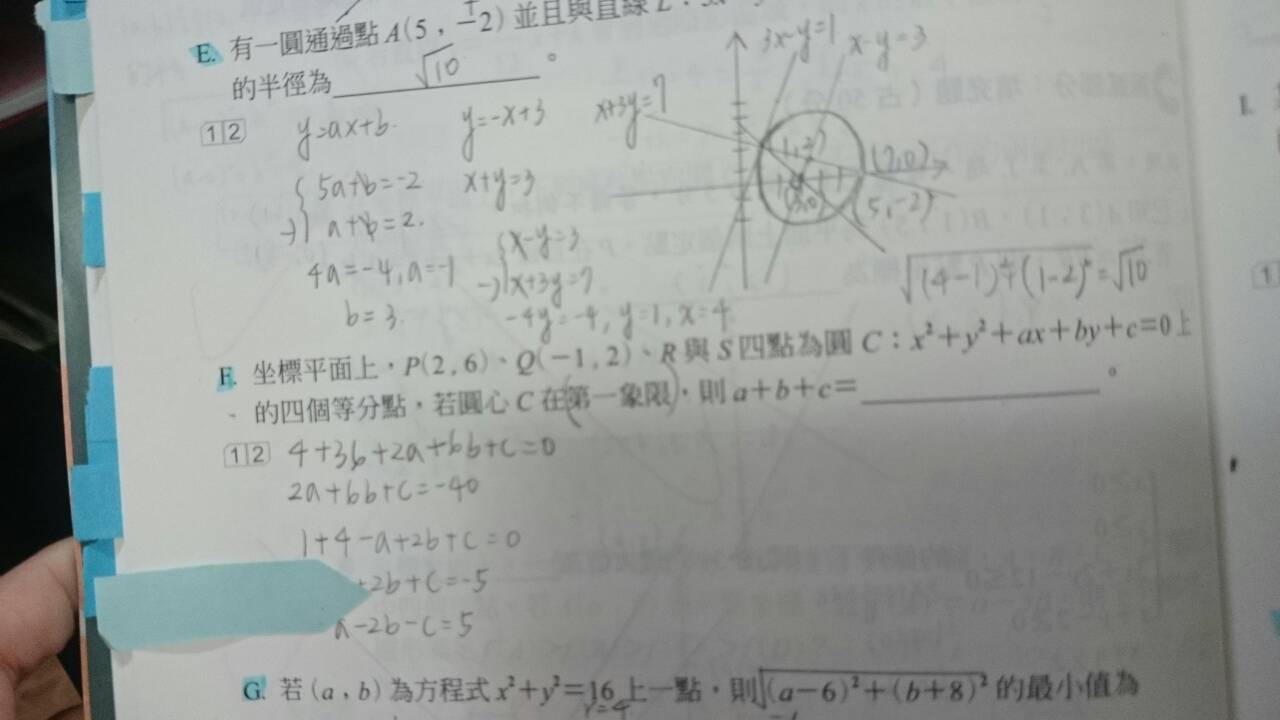 E. 有一圓通過點A(5,-2)並且與直線L:
的半徑為 √10 。
12 y=ax+b y=-x+3 x+3y=7
3x-y=1 x-y=3
(1,2) (7,0)
(3,0) (5,-2)
5a+b=-2 x+y=3
-) a+b=2.
4a=-4, a=-1
b=3
x-y=3
-) x+3y=7
-4y=-4, y=1, x=4
√(4-1)²+(1-2)²=√10
F. 坐標平面上,P(2,6)、Q(-1,2)、R與S四點為圓C:x²+y²+ax+by+c=0上
的四個等分點,若圓心C在第一象限,則a+b+c= 。
12 4+36+2a+6b+c=0
2a+6b+c=-40
1+4-a+2b+c=0
+2b+c=-5
a-2b-c=5
G. 若(a,b)為方程式x²+y²=16上一點,則√(a-6)²+(b+8)²的最小值為
r=4